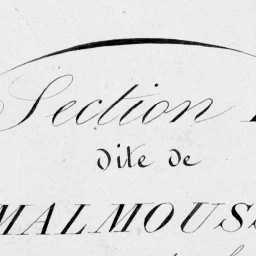 Section
dite de
MALMOUSS